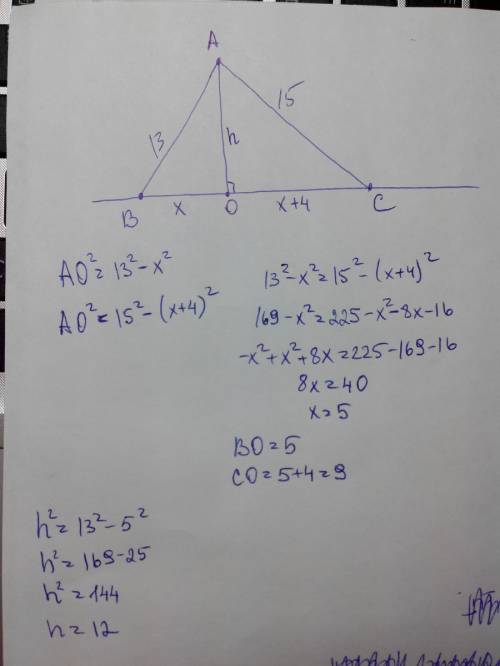 A
13
15
h
B x O x+4 C
AO²=13²-x²
AO²=15²-(x+4)²
13²-x²=15²-(x+4)²
169-x²=225-x²-8x-16
-x²+x²+8x=225-169-16
8x=40
x=5
BO=5
CO=5+4=9
h²=13²-5²
h²=169-25
h²=144
h=12